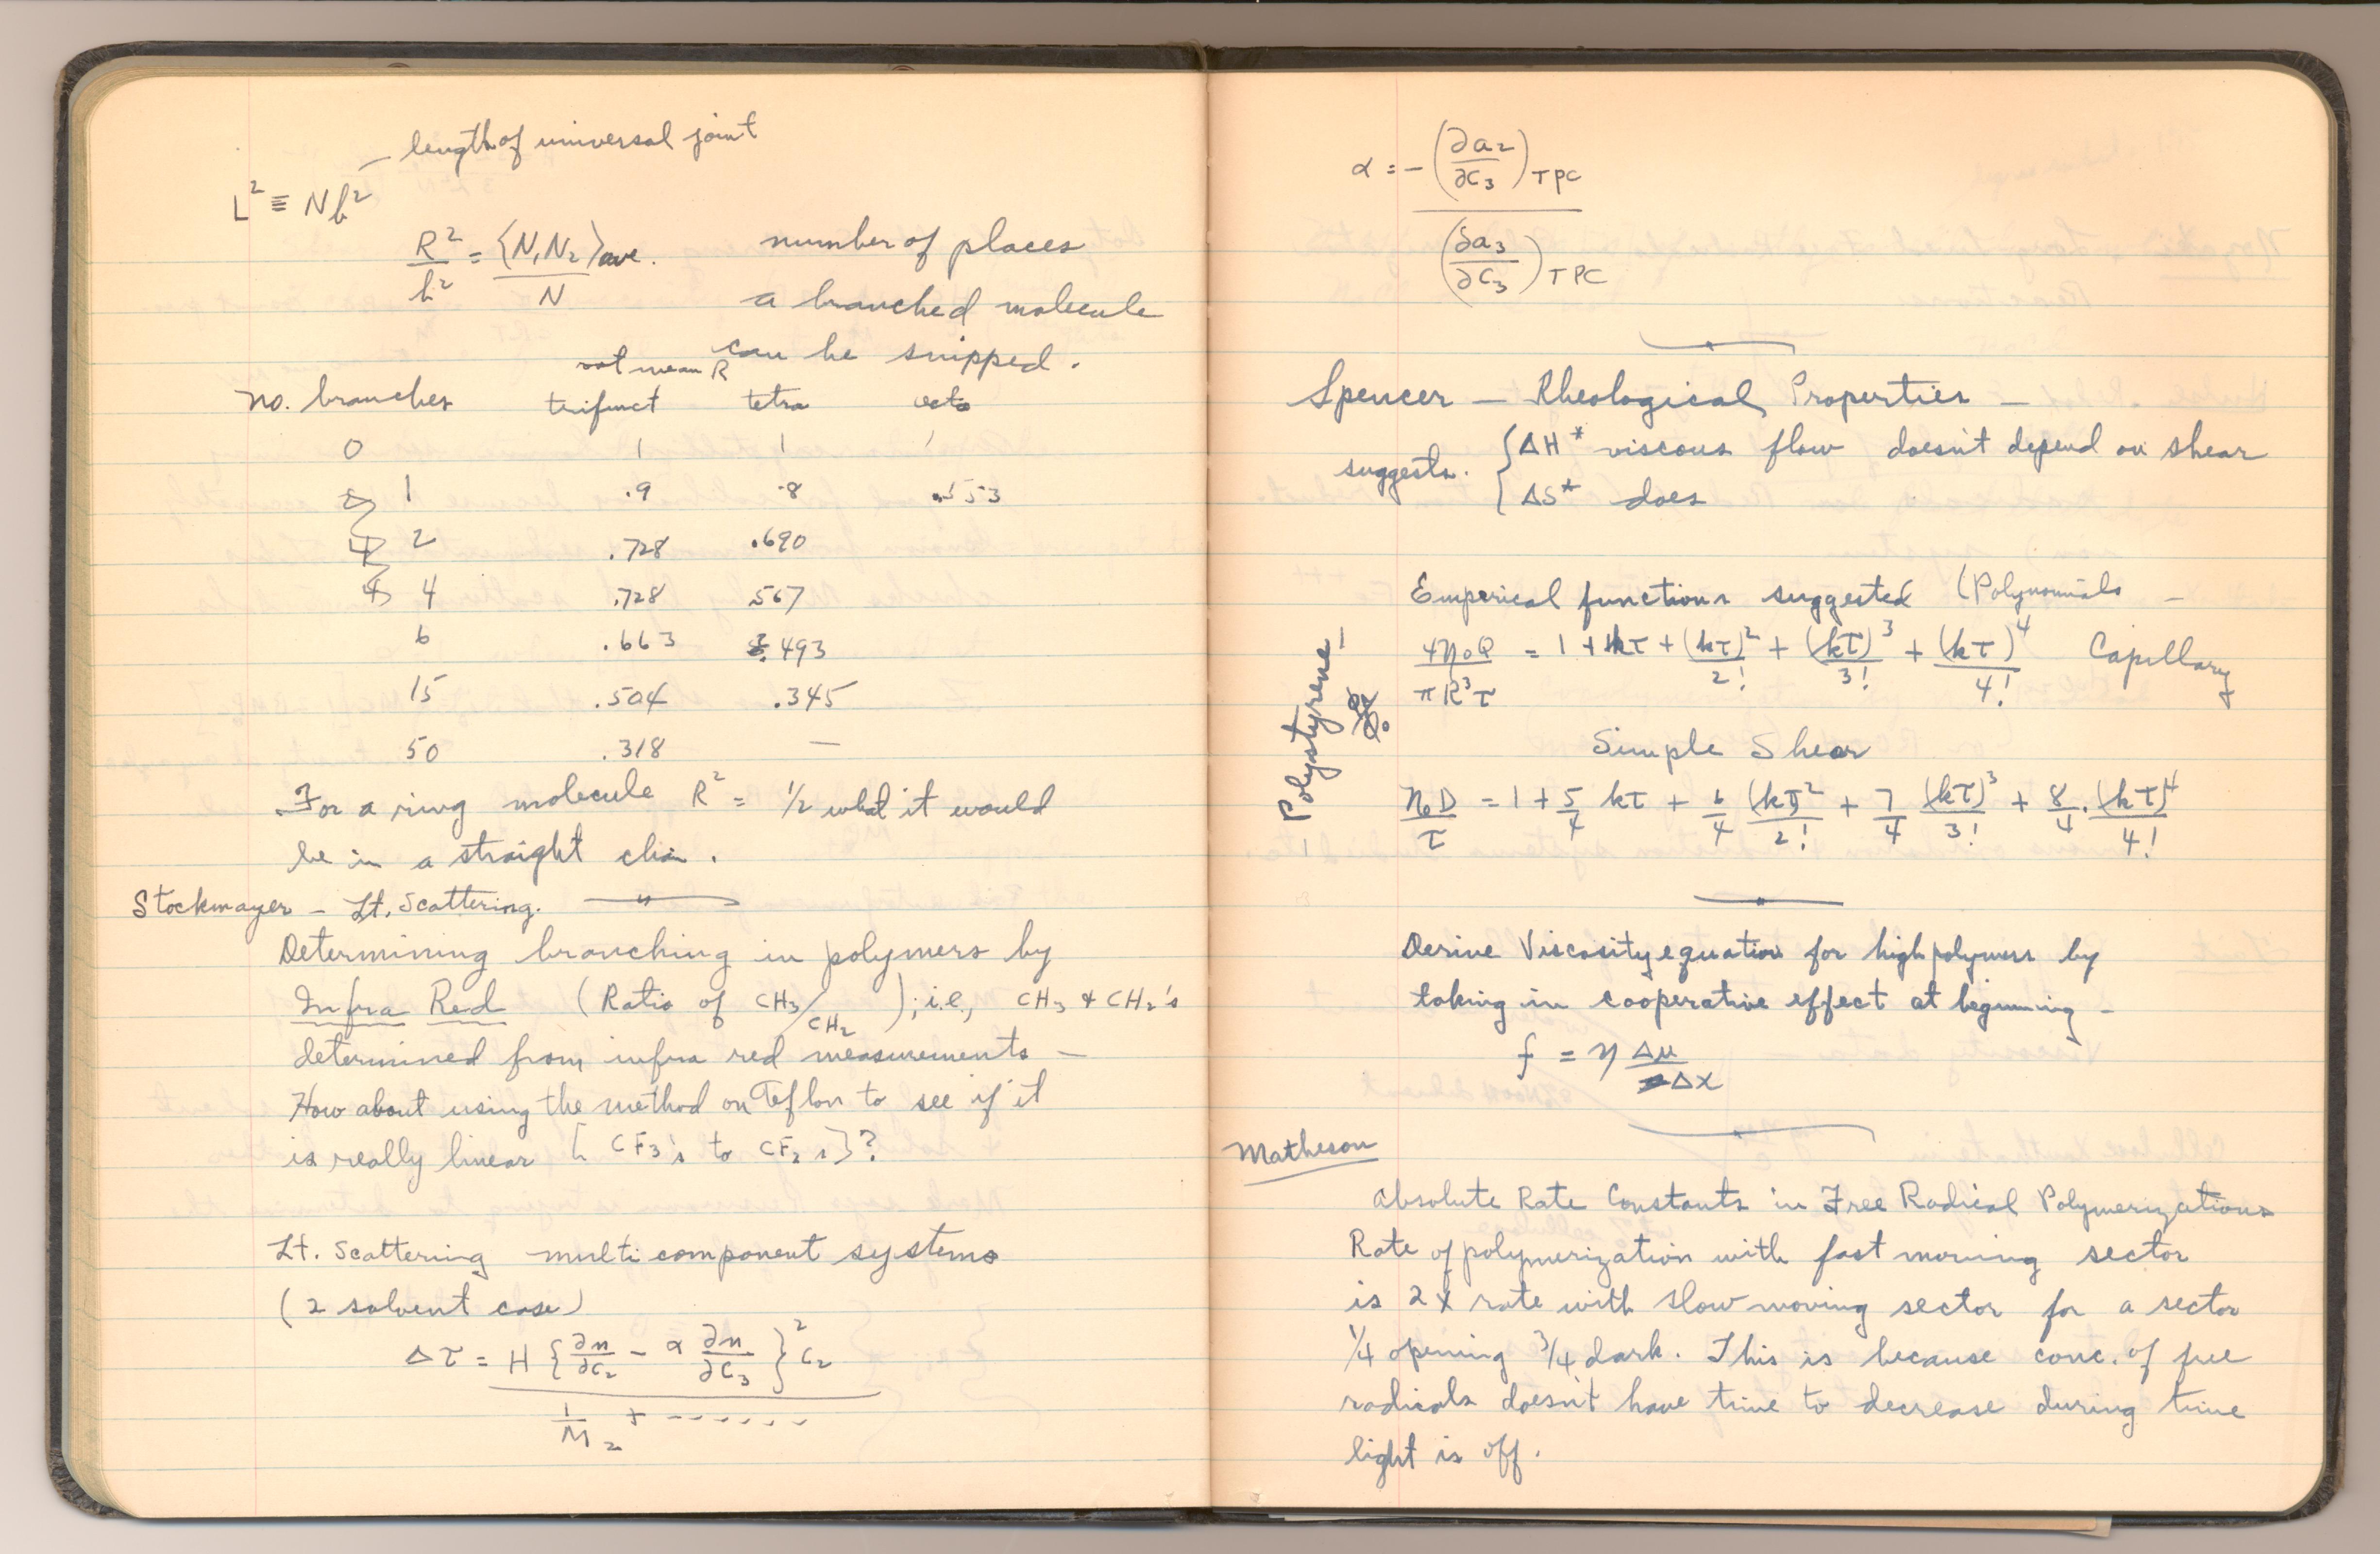 — length of universal joint
L² ≡ Nb²
R²/b² = ⟨N₁N₂⟩ave. / N
number of places
a branched molecule
can be snipped.
root mean R
No. branches trifunct tetra octo
0 1 1 1
1 .9 .8 .553
2 .728 .690
4 .728 .567
6 .663 .493
15 .504 .345
50 .318 —
For a ring molecule R² = 1/2 what it would
be in a straight chain.
Stockmayer – Lt. Scattering.
Determining branching in polymers by
Infra Red (Ratio of CH₃/CH₂); i.e., CH₃ & CH₂'s
determined from infra red measurements —
How about using the method on Teflon to see if it
is really linear [CF₃'s to CF₂'s]?
Lt. Scattering multi component systems
(2 solvent case)
Δτ = H {∂n/∂c₂ − α ∂n/∂c₃}² c₂
1/M₂ + -------
α = −(∂a₂/∂c₃)TPC
(∂a₃/∂c₃)TPC
Spencer — Rheological Properties —
suggests. { ΔH* viscous flow doesn't depend on shear
ΔS* does
Emperical functions suggested (Polynomials —
4η₀Q/πR³τ = 1 + kτ + (kτ)²/2! + (kτ)³/3! + (kτ)⁴/4! Capillary
Polystyrene!
Simple Shear
η₀D/τ = 1 + 5/4 kτ + 6/4 (kτ)²/2! + 7/4 (kτ)³/3! + 8/4 · (kτ)⁴/4!
Derive Viscosity equation for high polymers by
taking in cooperative effect at beginning —
f = η Δu/Δx
Matheson
Absolute Rate Constants in Free Radical Polymerizations
Rate of polymerization with fast moving sector
is 2X rate with slow moving sector for a sector
1/4 opening 3/4 dark. This is because conc. of free
radicals doesn't have time to decrease during time
light is off.